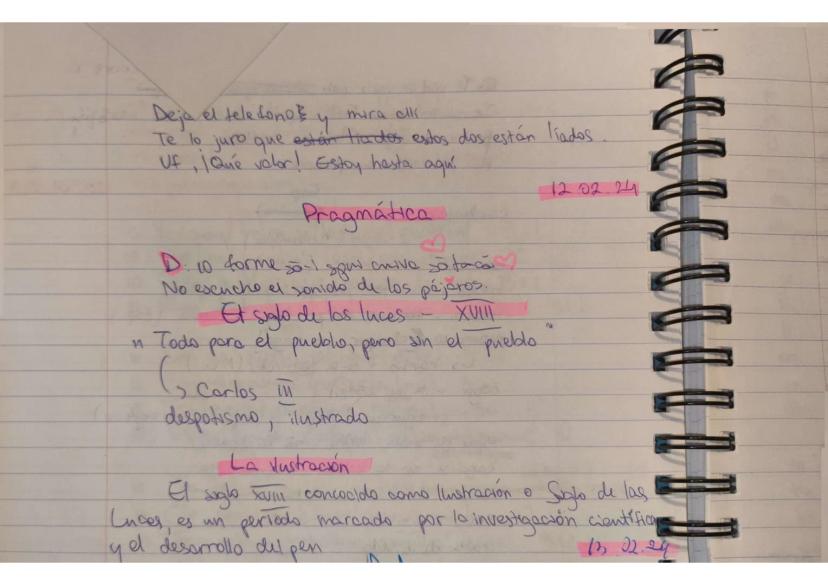 Deja el telefono y mira allí
Te lo juro que están liados estos dos están liados.
Uf, ¡Qué valor! Estoy hasta aquí
12.02.24
Pragmática
D. 10 forme
No escucho el sonido de los pájaros.
El siglo de las luces - XVIII
"Todo para el pueblo, pero sin el pueblo"
Carlos III
despotismo, ilustrado
La Ilustración
El siglo XVIII concocido como Ilustración o Siglo de las
Luces, es un período marcado por la investigación científica
y el desarrollo del pen
13.02.24